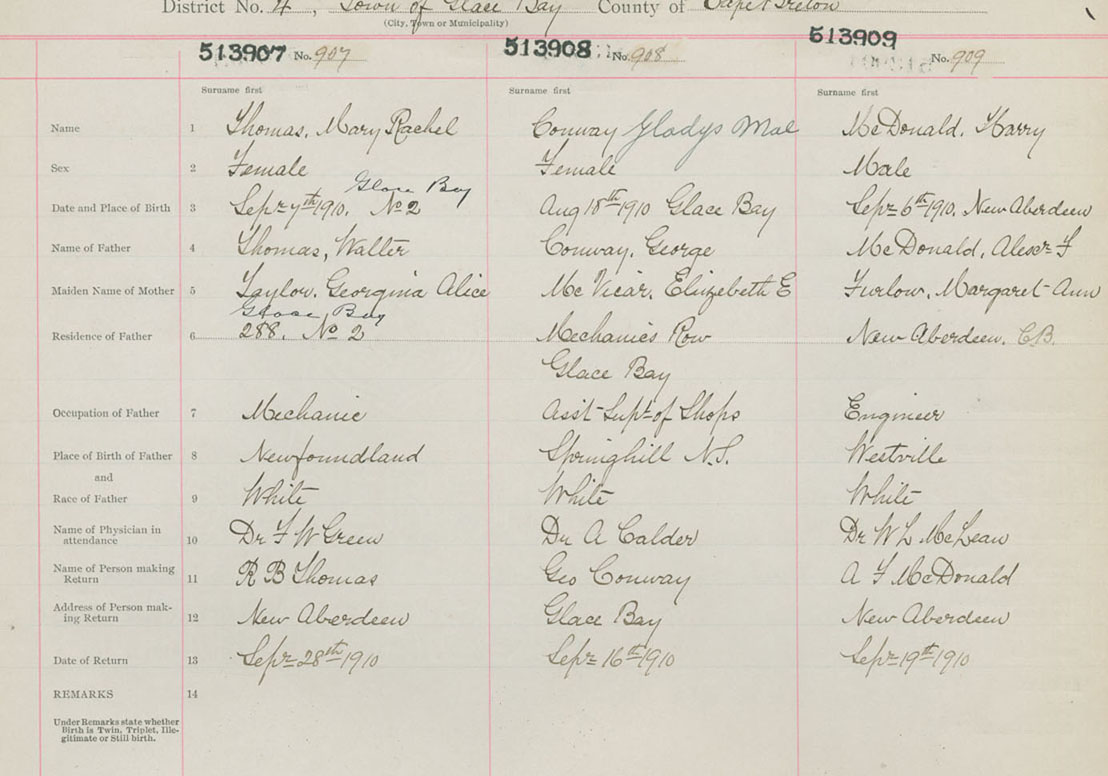 District No. 4, Town of Glace Bay County of Cape Breton
(City, Town or Municipality)
513907 No. 907 513908 No. 908 513909 No. 909
Surname first Surname first Surname first
Name 1 Thomas, Mary Rachel Conway Gladys Mae McDonald, Harry
Sex 2 Female Female Male
Glace Bay
Date and Place of Birth 3 Sepr 7th 1910. No 2 Aug 18th 1910 Glace Bay Sepr 6th 1910. New Aberdeen
Name of Father 4 Thomas, Walter Conway, George McDonald, Alexr F
Maiden Name of Mother 5 Taylor, Georgina Alice McVicar, Elizebeth E Furlow, Margaret Ann
Glace Bay
Residence of Father 6 288. No 2 Mechanics Row New Aberdeen, C.B.
Glace Bay
Occupation of Father 7 Mechanic Asst Supt of Shops Engineer
Place of Birth of Father 8 Newfoundland Springhill N.S. Westville
and
Race of Father 9 White White White
Name of Physician in attendance 10 Dr F W Green Dr A Calder Dr W L McLean
Name of Person making Return 11 R B Thomas Geo Conway A F McDonald
Address of Person mak-
ing Return 12 New Aberdeen Glace Bay New Aberdeen
Date of Return 13 Sepr 28th 1910 Sepr 16th 1910 Sepr 19th 1910
REMARKS 14
Under Remarks state whether
Birth is Twin, Triplet, Ille-
gitimate or Still birth.